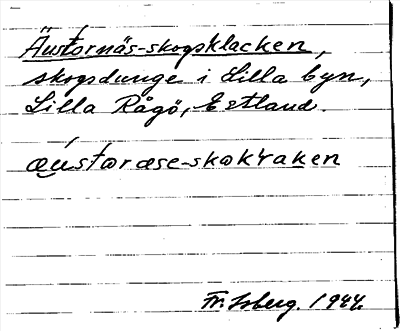 Äustornäs-skogsklacken,
skogsdunge i Lilla byn,
Lilla Rågö, Estland.
æustoræse-skokraken
Fr. Isberg. 1944.